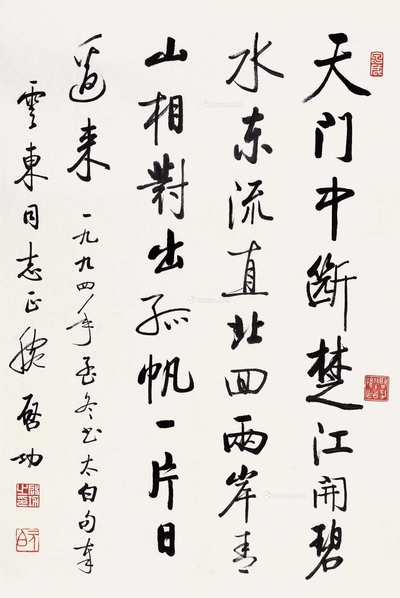 天门中断楚江開碧
水东流直北回兩岸青
山相對出孤帆一片日
邊来 一九九四年孟冬书太白句奉
雲東同志正腕 啟功